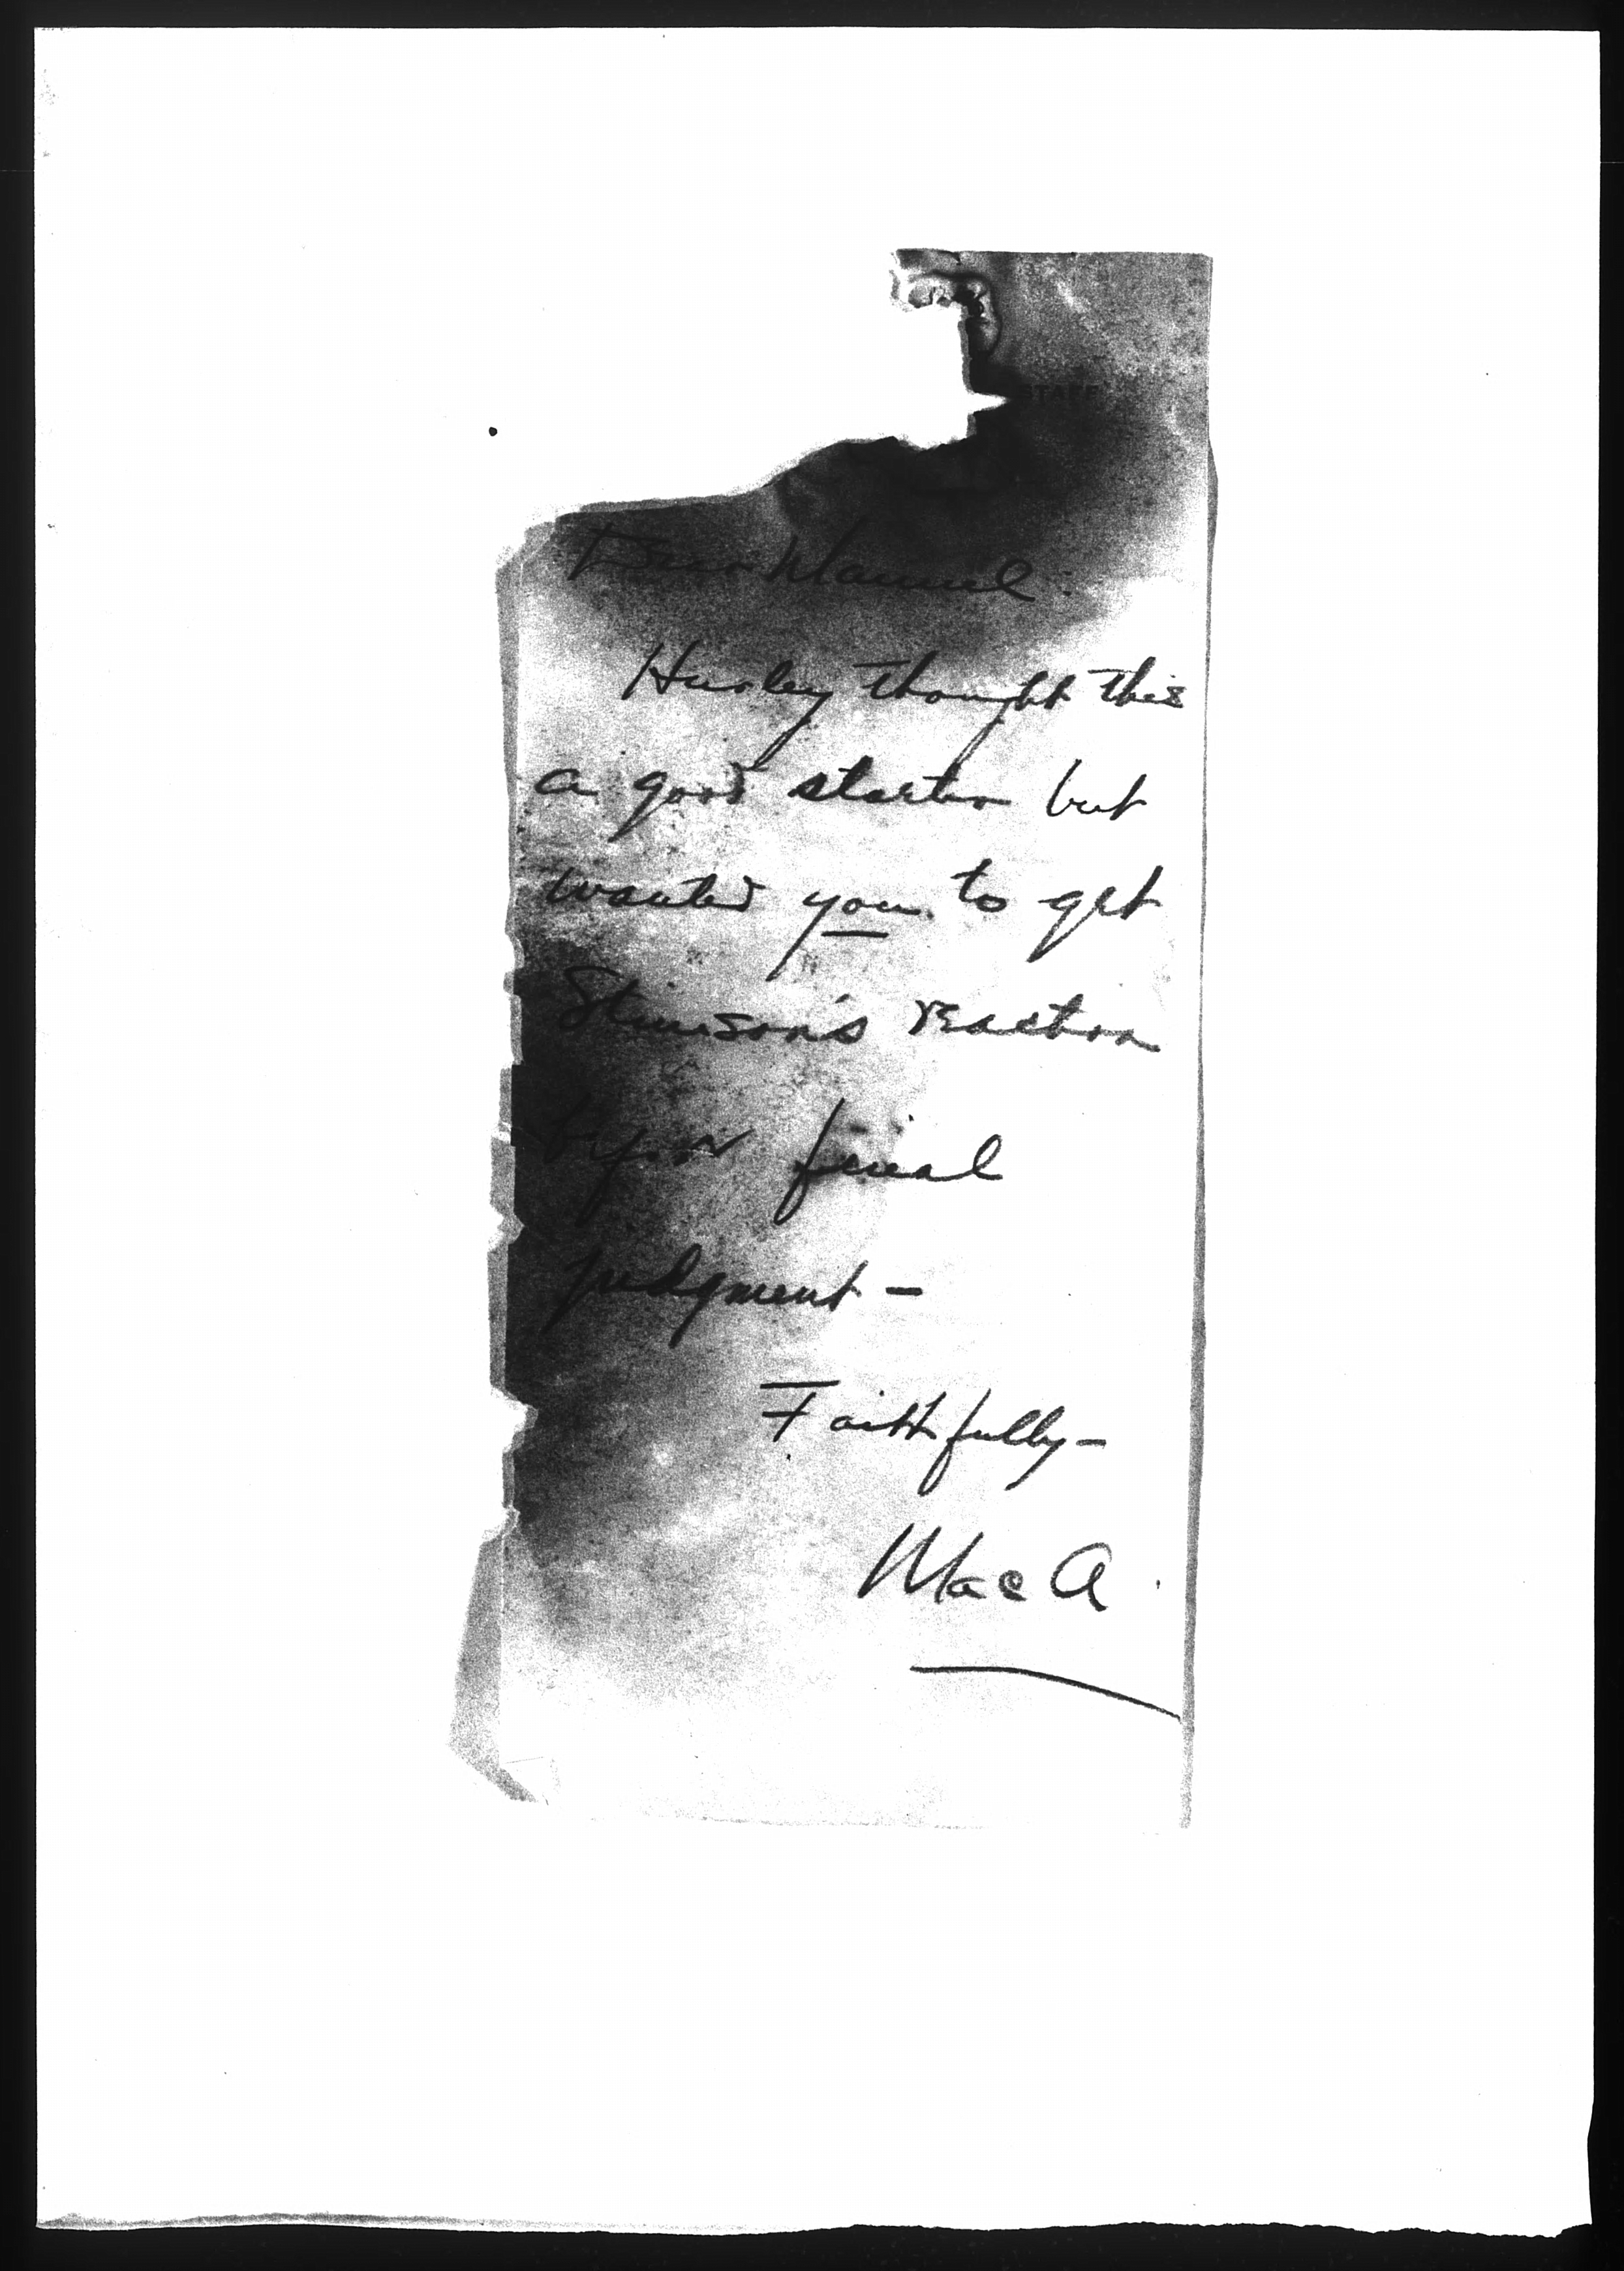 STAFF
Dear Manuel:
Hurley thought this
a good starter but
wanted you to get
Stimson's reaction
final
judgment —
Faithfully —
Mac A.